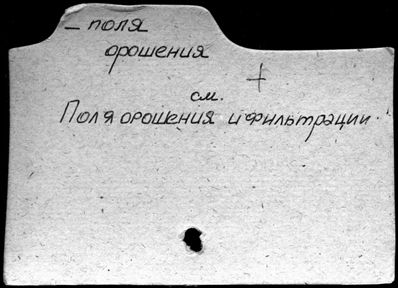 – поля
орошения
+
см.
Поля орошения и фильтрации.